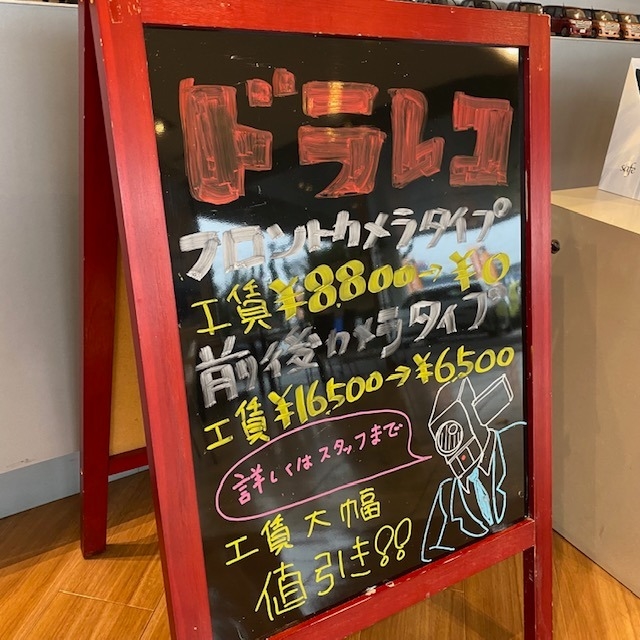 ドラレコ
フロントカメラタイプ
工賃¥8,800→¥0
前後カメラタイプ
工賃¥16,500→¥6,500
詳しくはスタッフまで
工賃大幅
値引き!!
safe